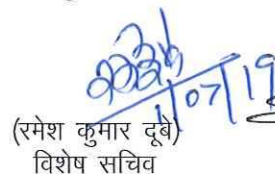 1/07/19
(रमेश कुमार दूबे)
विशेष सचिव